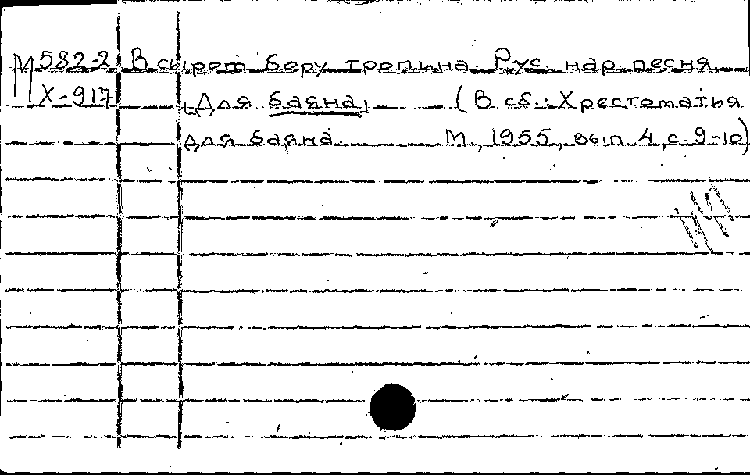 М 582-2 В сыром бору тропина. Рус. нар песня
Х-917 [Для баяна] (В сб.: Хрестоматия
для баяна М., 1955, вып. 4, с. 9-10)